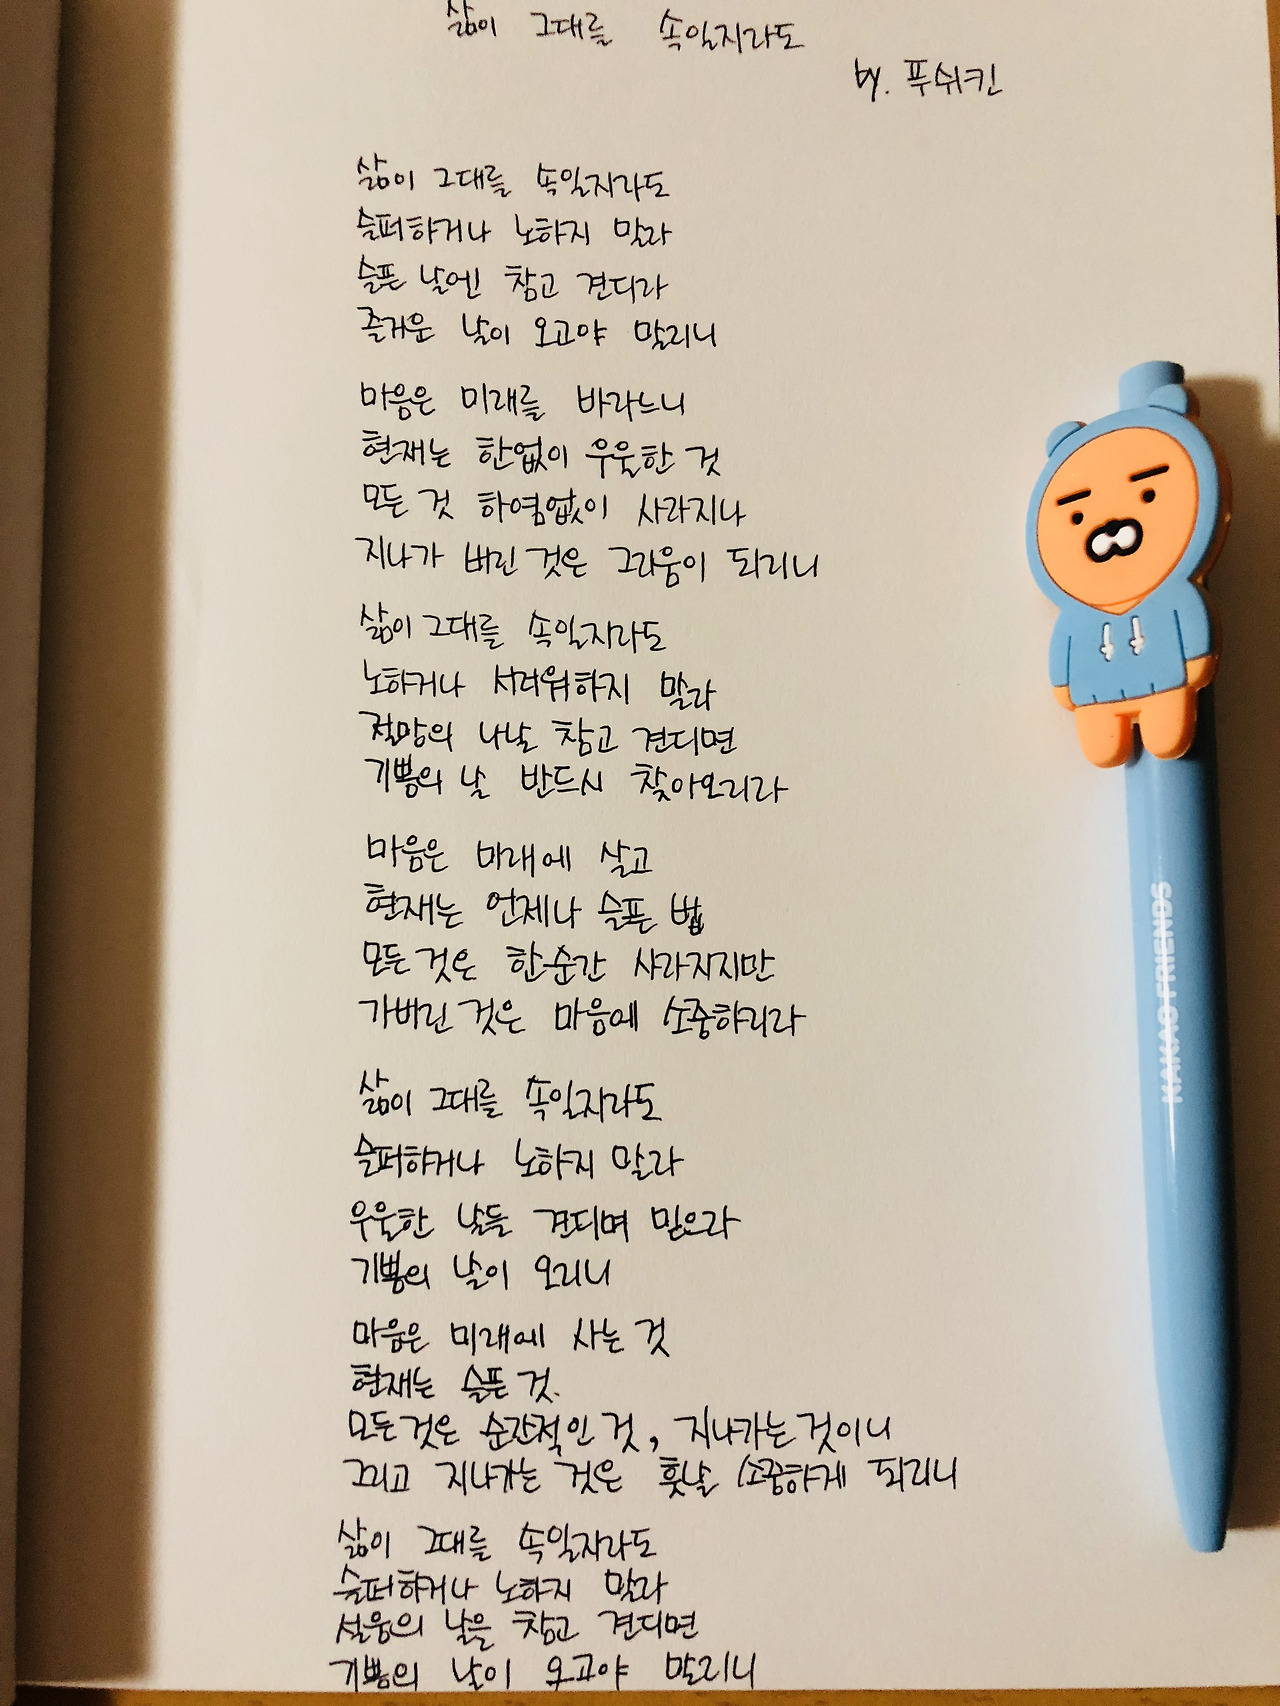 삶이 그대를 속일지라도
by. 푸쉬킨
삶이 그대를 속일지라도
슬퍼하거나 노하지 말라
슬픈 날엔 참고 견디라
즐거운 날이 오고야 말리니
마음은 미래를 바라느니
현재는 한없이 우울한 것
모든 것 하염없이 사라지나
지나가 버린 것은 그리움이 되리니
삶이 그대를 속일지라도
노하거나 서러워하지 말라
절망의 나날 참고 견디면
기쁨의 날 반드시 찾아오리라
마음은 미래에 살고
현재는 언제나 슬픈 법
모든 것은 한순간 사라지지만
가버린 것은 마음에 소중하리라
삶이 그대를 속일지라도
슬퍼하거나 노하지 말라
우울한 날들 견디며 믿으라
기쁨의 날이 오리니
마음은 미래에 사는 것
현재는 슬픈 것.
모든 것은 순간적인 것, 지나가는 것이니
그리고 지나가는 것은 훗날 소중하게 되리니
삶이 그대를 속일지라도
슬퍼하거나 노하지 말라
설움의 날을 참고 견디면
기쁨의 날이 오고야 말리니
KAKAO FRIENDS